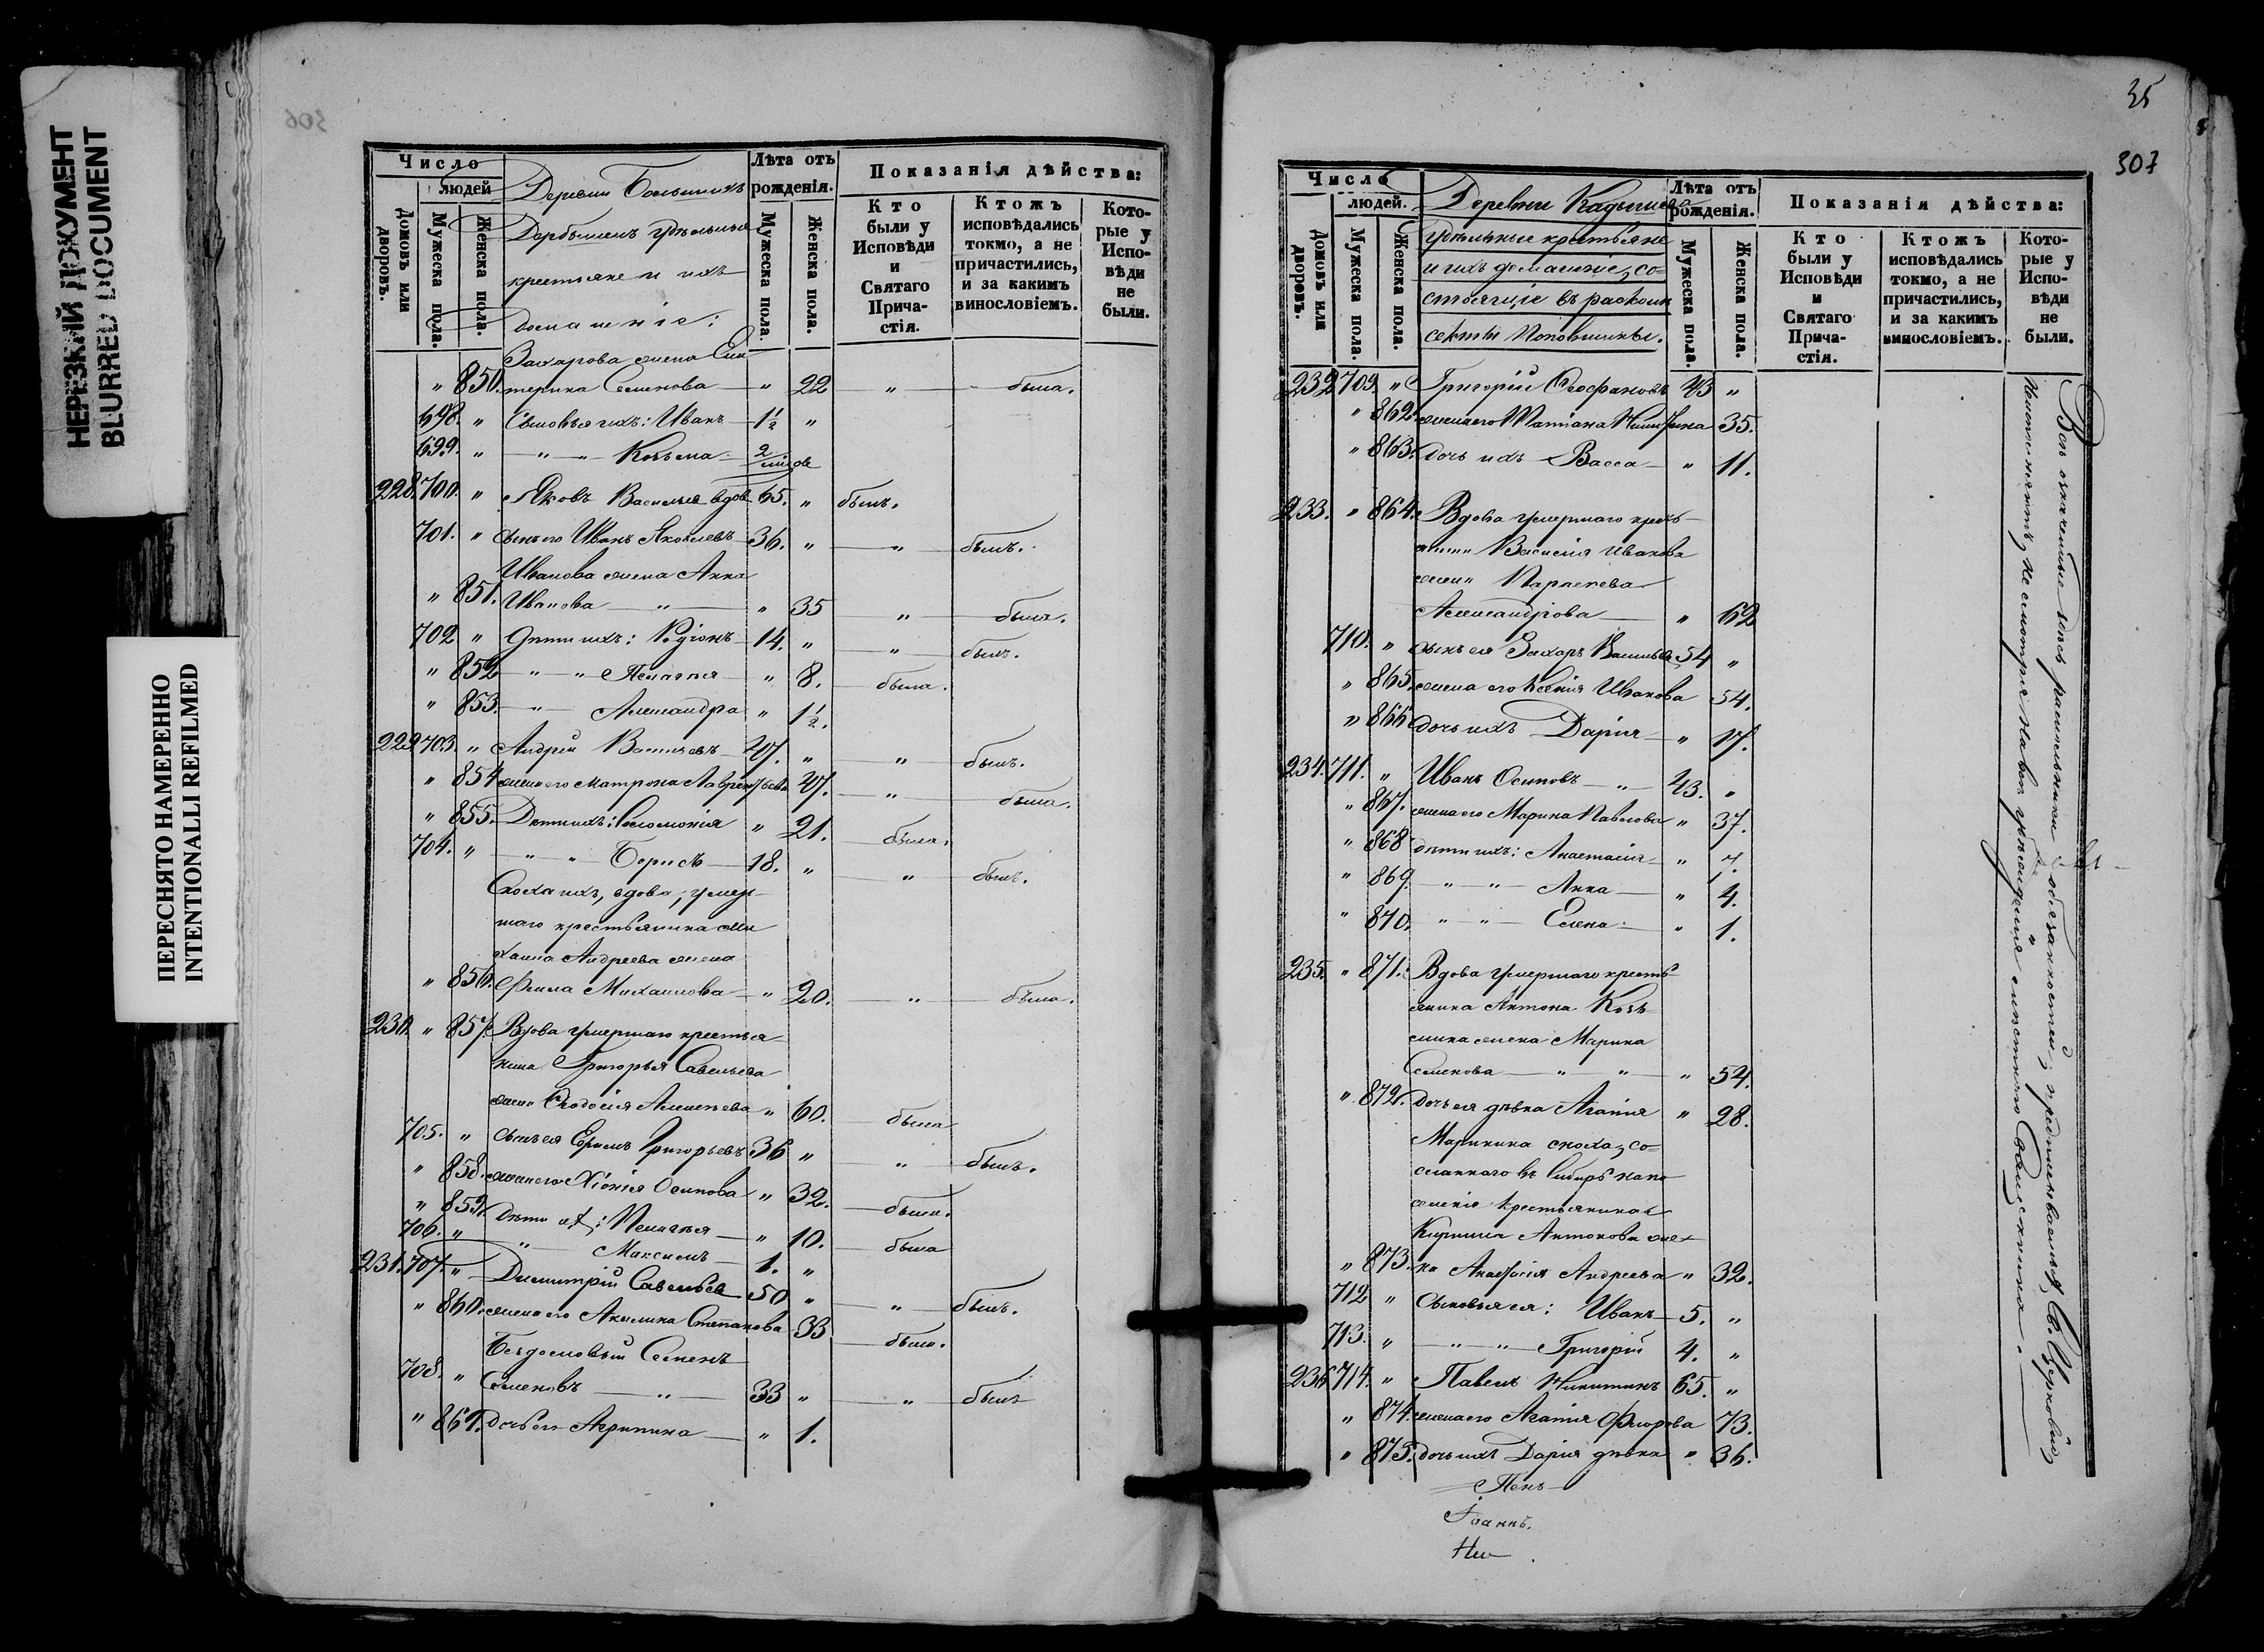 НЕРЕЗКИЙ ДОКУМЕНТ
BLURRED DOCUMENT
ПЕРЕСНЯТО НАМЕРЕННО
INTENTIONALLI REFILMED
306
Число
людей
Домовъ или дворовъ.
Мужеска пола.
Женска пола.
Деревни Большихъ
Дарбышевъ удѣльные
крестьяне и ихъ
домашніе:
Лѣта отъ рожденія.
Мужеска пола.
Женска пола.
Показанія дѣйства:
Кто были у Исповѣди и Святаго Прича-стія.
Ктожъ исповѣдались токмо, а не причастились, и за какимъ винословіемъ.
Кото-рые у Испо-вѣди не были.
Захарова жена Ека
" 850. терина Семенова " 22 " была.
698. " Сыновья ихъ: Иванъ 1½ "
699. " " " Козьма 2
228. 700. " Яковъ Васильевъ вдов 65. " былъ.
701. " сынъ его Иванъ Яковлевъ 36. " " былъ.
Иванова жена Анна
" 851. Иванова " " 35 " была.
702 " Дѣти ихъ: Родіонъ 14. " " былъ.
" 852 " " Пелагея " 8. была.
" 853. " Александра " 1½.
229. 703. " Андрей Васильевъ 47. " " былъ.
" 854 жена его Матрона Лаврентьева 47. " была.
" 855. Дѣти ихъ: Соломонія " 21. была.
704. " " " Борисъ 18. " " былъ.
Сноха ихъ, вдова, умер-
шаго крестьянина Ми
хаила Андреева жена
" 856. Фекла Михаилова " 20. " была.
230. " 857. Вдова умершаго крестья
нина Григорья Савельева
жена Феодосія Алексѣева " 60. была
705. " сынъ ея Ефимъ Григорьевъ 36 " " былъ.
" 858. жена его Хіонія Осипова " 32. была.
" 859. Дѣти ихъ: Пелагея " 10. была
706. " " Максимъ 1. "
231. 707. " Димитрій Савельевъ 50 " " былъ.
" 860. жена его Акилина Степанова 33 была.
Бездомовый Семенъ
708. " Семеновъ " 33 " " былъ
" 861. дочь его Агрипина " 1.
35
307
Число
людей.
Домовъ или дворовъ.
Мужеска пола.
Женска пола.
Деревни Кадышева
удѣльные крестьяне
и ихъ домашніе, со-
стоящіе въ расколѣ
секты Поповщины.
Лѣта отъ рожденія.
Мужеска пола.
Женска пола.
Показанія дѣйства:
Кто были у Исповѣди и Святаго Прича-стія.
Ктожъ исповѣдались токмо, а не причастились, и за какимъ винословіемъ.
Кото-рые у Испо-вѣди не были.
232 709. " Григорій Феофановъ 43 "
" 862. жена его Татіана Никитина 35.
" 863. дочь ихъ Васса " 11.
233. " 864. Вдова умершаго кресть-
янина Василія Иванова
жена Параскева
Александрова " 62
710. " сынъ ея Захаръ Васильевъ 34 "
" 865. жена его Ксенія Иванова 54.
" 866 дочь ихъ Дарія " 17.
234. 711. " Иванъ Осиповъ " 43. "
" 867. жена его Марина Павлова " 37.
" 868 дѣти ихъ: Анастасія " 7.
" 869. " " Анна " 4.
" 870. " " Елена " 1.
235. " 871. Вдова умершаго кресть
янина Антона Козь-
мина жена Марина
Семенова " " " 54.
" 872. дочь ея дѣвка Агапія " 28.
Маринина сноха, со-
сланнаго въ Сибирь на по
селеніе крестьянина
Кирилла Антонова же-
" 873. на Анастасія Андреева " 32.
712 " Сыновья ея: Иванъ 5. "
713. " " " Григорій 4. "
236 714. " Павелъ Никитинъ 65. "
" 874. жена его Агапія Флорова 73.
" 875. дочь ихъ Дарія дѣвка " 36.
Всѣ означенные здѣсь раскольники обязанностей, предписываемыхъ Св. Церковію,
не исполняютъ, не смотря на вси убѣжденія мѣстнаго Священника.
Іоаннъ.